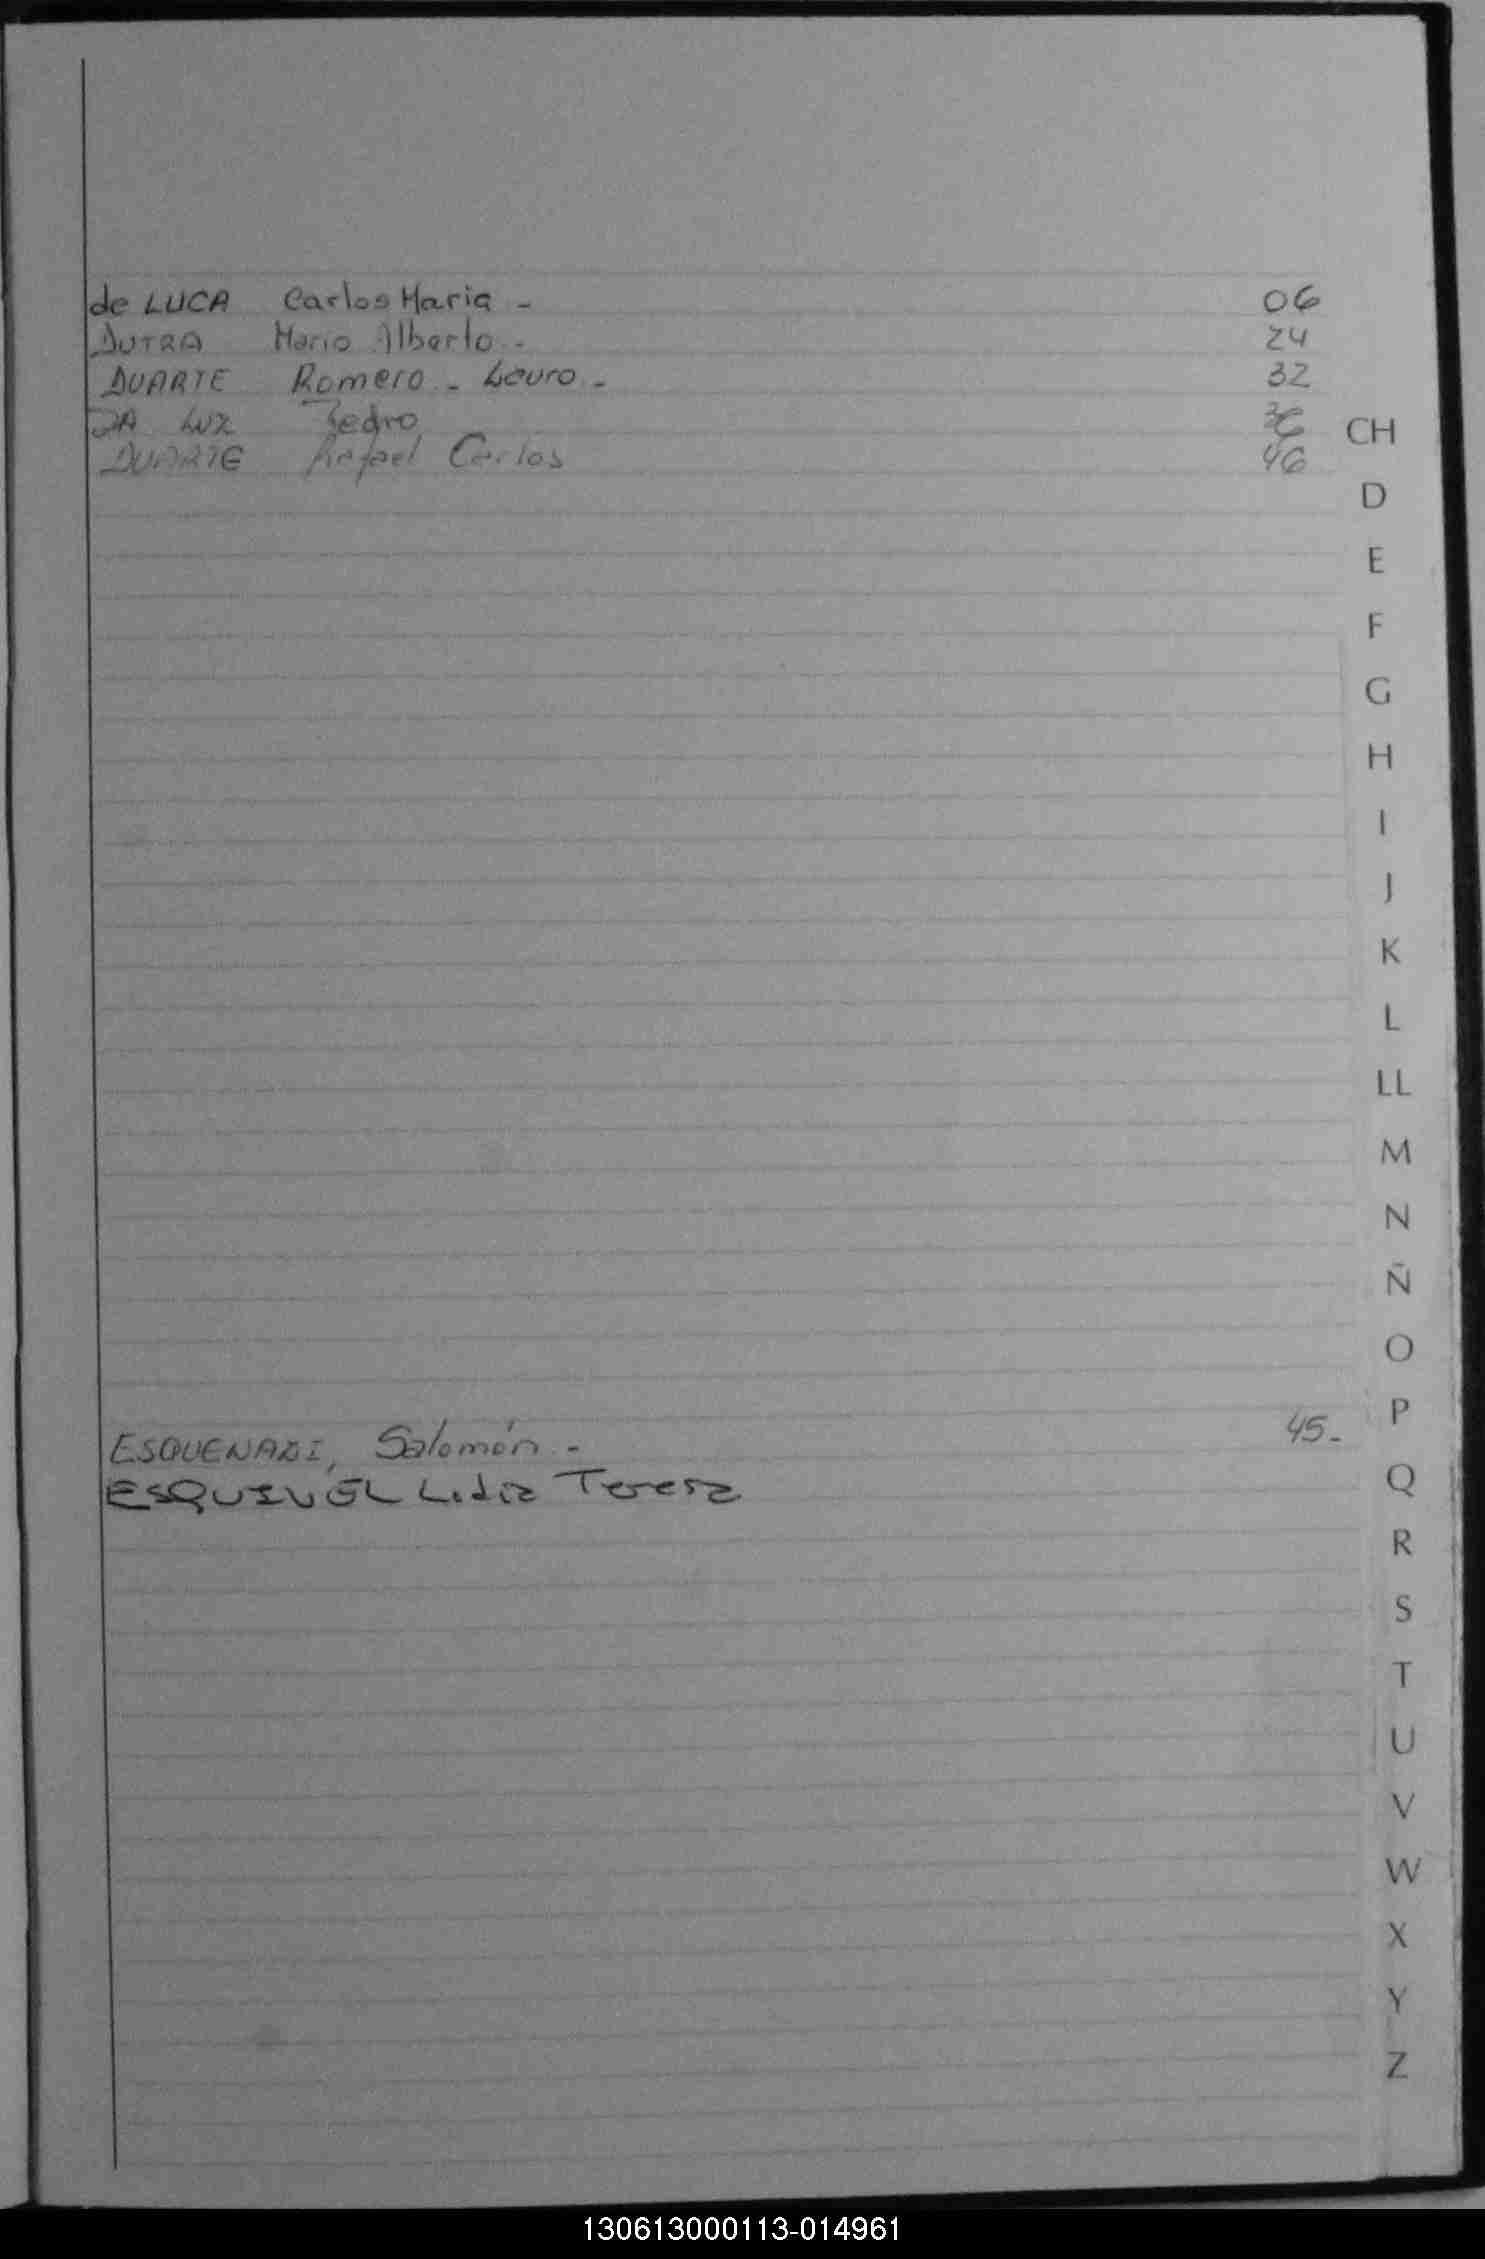 de LUCA Carlos Maria - 06
DUTRA Mario Alberto - 24
DUARTE Romero - Lauro - 32
DA LUZ Pedro 36
DUARTE Rafael Carlos 46
CH
D
E
F
G
H
I
J
K
L
LL
M
N
Ñ
O
P
ESQUENAZI, Salomón - 45-
Q
ESQUIVEL Lidia Teresa
R
S
T
U
V
W
X
Y
Z
130613000113-014961